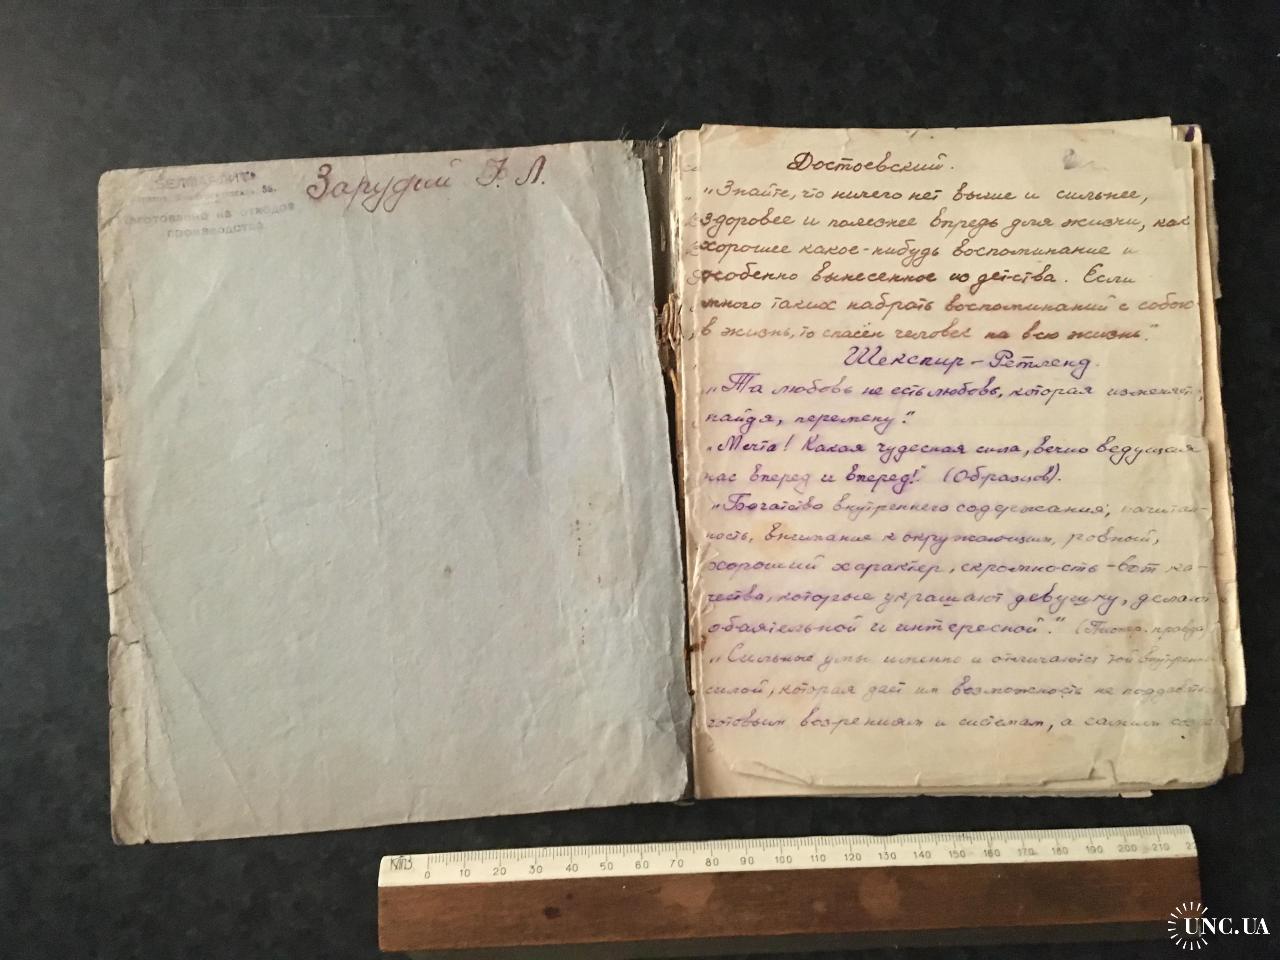 Зарудий Г. Л.
Изготовлено из отходов
производства
Достоевский.
„Знайте, что ничего нет выше и сильнее,
здоровее и полезнее впредь для жизни, как
хорошее какое-нибудь воспоминание и
особенно вынесенное из детства. Если
много таких набрать воспоминаний с собою
в жизнь, то спасён человек на всю жизнь."
Шекспир - Ретленд.
„Та любовь не есть любовь, которая изменяет,
найдя, перемену."
„Мечта! Какая чудесная сила, вечно ведущая
нас вперед и вперед!" (Образцов).
„Богатство внутреннего содержания, начитан-
ность, внимание к окружающим, ровный,
хороший характер, скромность - вот ка-
чества, которые украшают девушку, делают
обаятельной и интересной." (Пионер. правда)
„Сильные умы именно и отличаются той внутрен
силой, которая дает им возможность не поддавать
готовым воззрениям и системам, а самим
КПЗ
0 10 20 30 40 50 60 70 80 90 100 110 120 130 140 150 160 170 180 190 200 210 22
UNC.UA